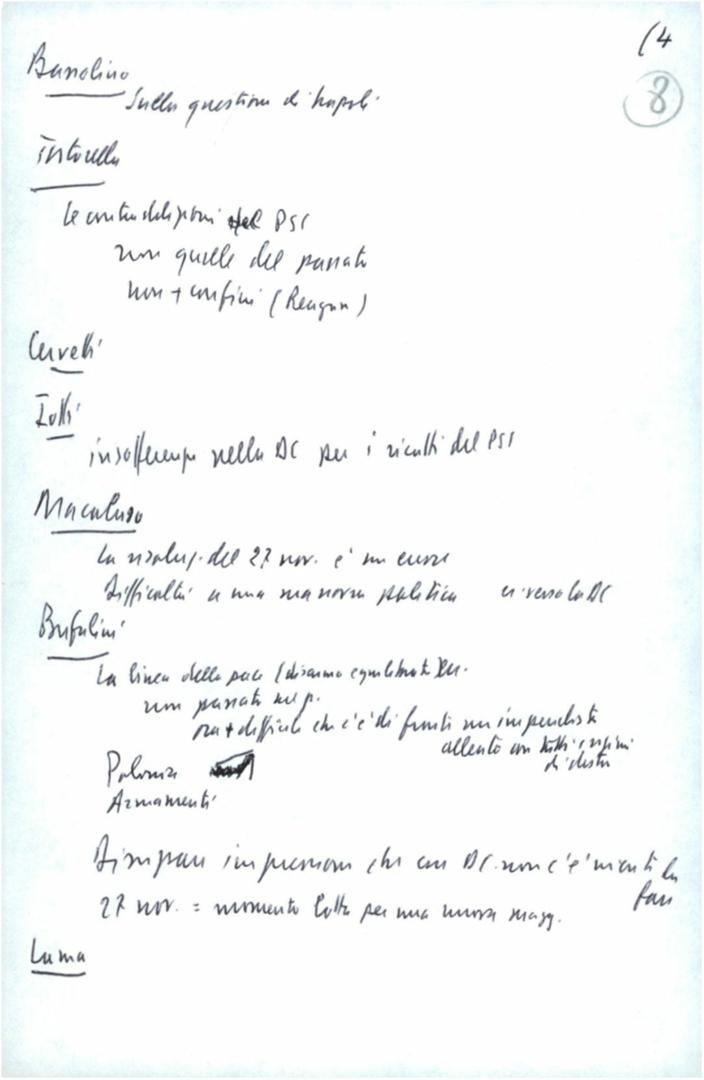 (4
8
Bassolino
Sulla questione di Napoli
Tortorella
Le contraddizioni del PSI
non quelle del passato
non + confini (Reagan)
Cervetti
Iotti
insofferenze nella DC per i ricatti del PSI
Macaluso
La risoluz. del 27 nov. è un errore
Difficoltà a una manovra politica verso la DC
Bufalini
La linea della pace (disarmo equilibrato
non passata nel p.
ora + difficile che c'è di fronte un imperialista
allento con tutti i regimi
di destra
Polonia
Armamenti
Dissipare impressione che con DC non c'è niente da
fare
27 nov. = momento lotta per una nuova magg.
Lama